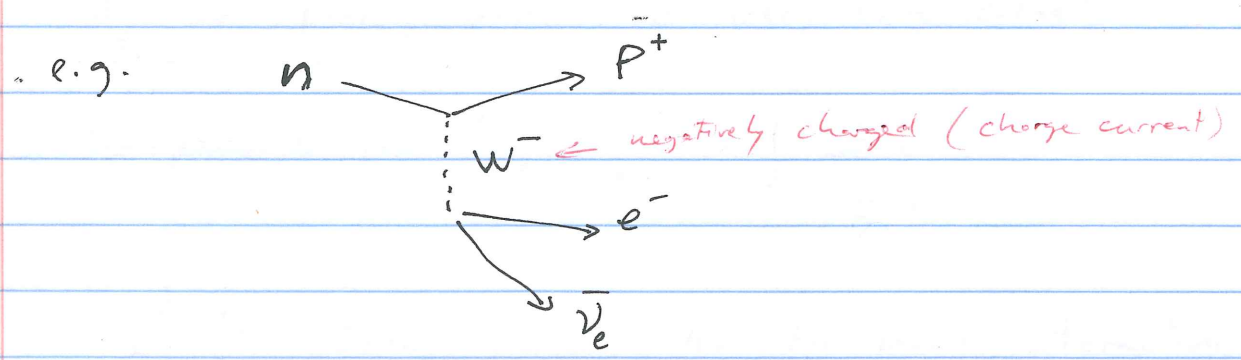 . e.g. n p⁺
W⁻ ← negatively charged (charge current)
e⁻
ν̄ₑ